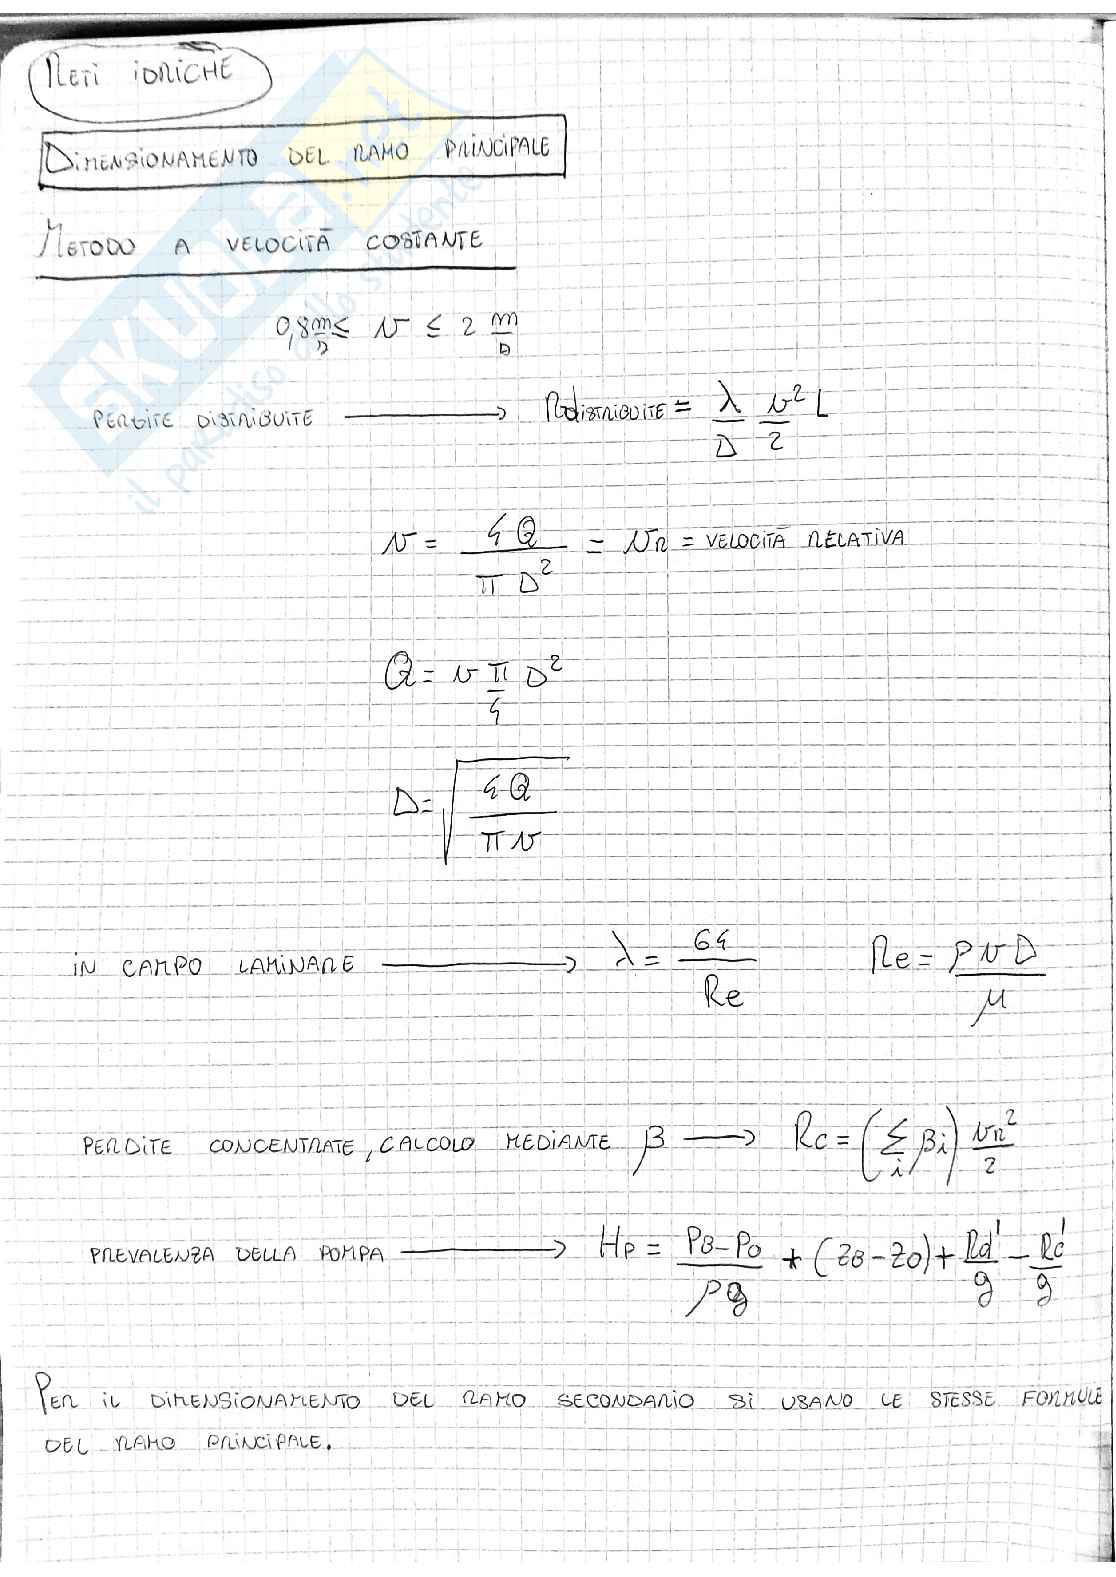 RETI IDRICHE
DIMENSIONAMENTO DEL RAMO PRINCIPALE
METODO A VELOCITÀ COSTANTE
0,8 m/s ≤ v ≤ 2 m/s
PERDITE DISTRIBUITE → Rdistribuite = λ/D v²/2 L
v = 4Q / πD² = vr = VELOCITÀ RELATIVA
Q = v π/4 D²
D = √(4Q / πv)
IN CAMPO LAMINARE → λ = 64/Re Re = ρvD/μ
PERDITE CONCENTRATE, CALCOLO MEDIANTE β → Rc = (Σi βi) vr²/2
PREVALENZA DELLA POMPA → Hp = (PB-PO)/ρg + (ZB-ZO) + Rd'/g - Rc'/g
PER IL DIMENSIONAMENTO DEL RAMO SECONDARIO SI USANO LE STESSE FORMULE
DEL RAMO PRINCIPALE.
SKUOLA.net
il paradiso dello studente